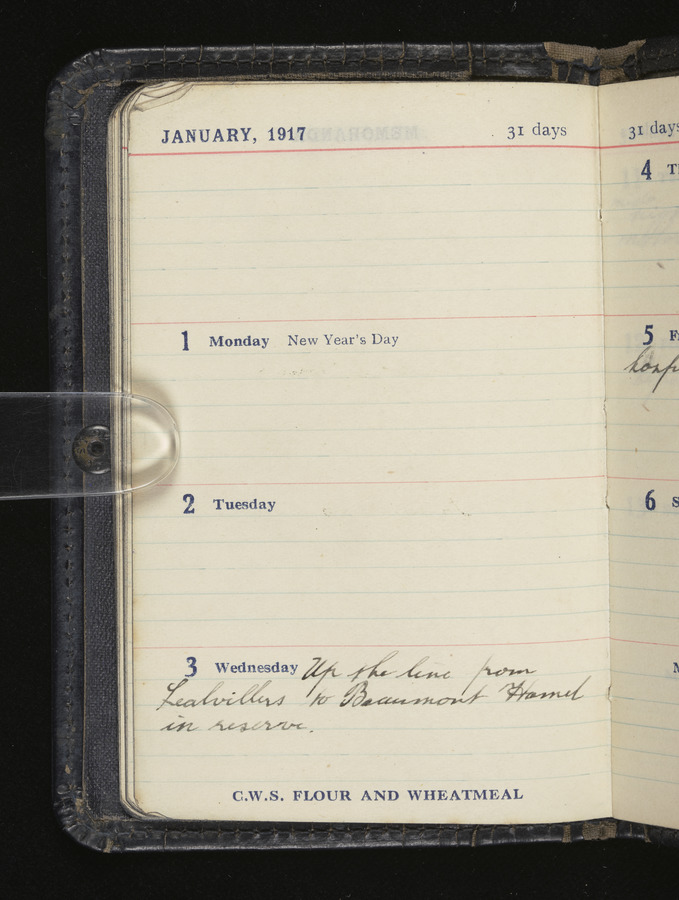 JANUARY, 1917 31 days
1 Monday New Year's Day
2 Tuesday
3 Wednesday Up the line from
Lealvillers to Beaumont Hamel
in reserve.
C.W.S. FLOUR AND WHEATMEAL
31 days
4
5
6